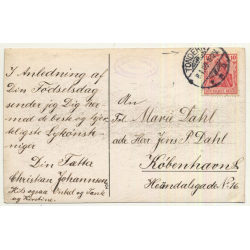 I Anledning af
Din Födselsdag
sender jeg Dig her-
med de beste og hjer-
teligste Lykönsk-
ninger
Din Fætter
Christian Johannsen
Hils ogsaa Onkel og Tante
og Kirstine.
TONDERN
10
Frl Marie Dahl
adr Herr Jens P. Dahl
Köbenhavn
Heimdalsgade No 16